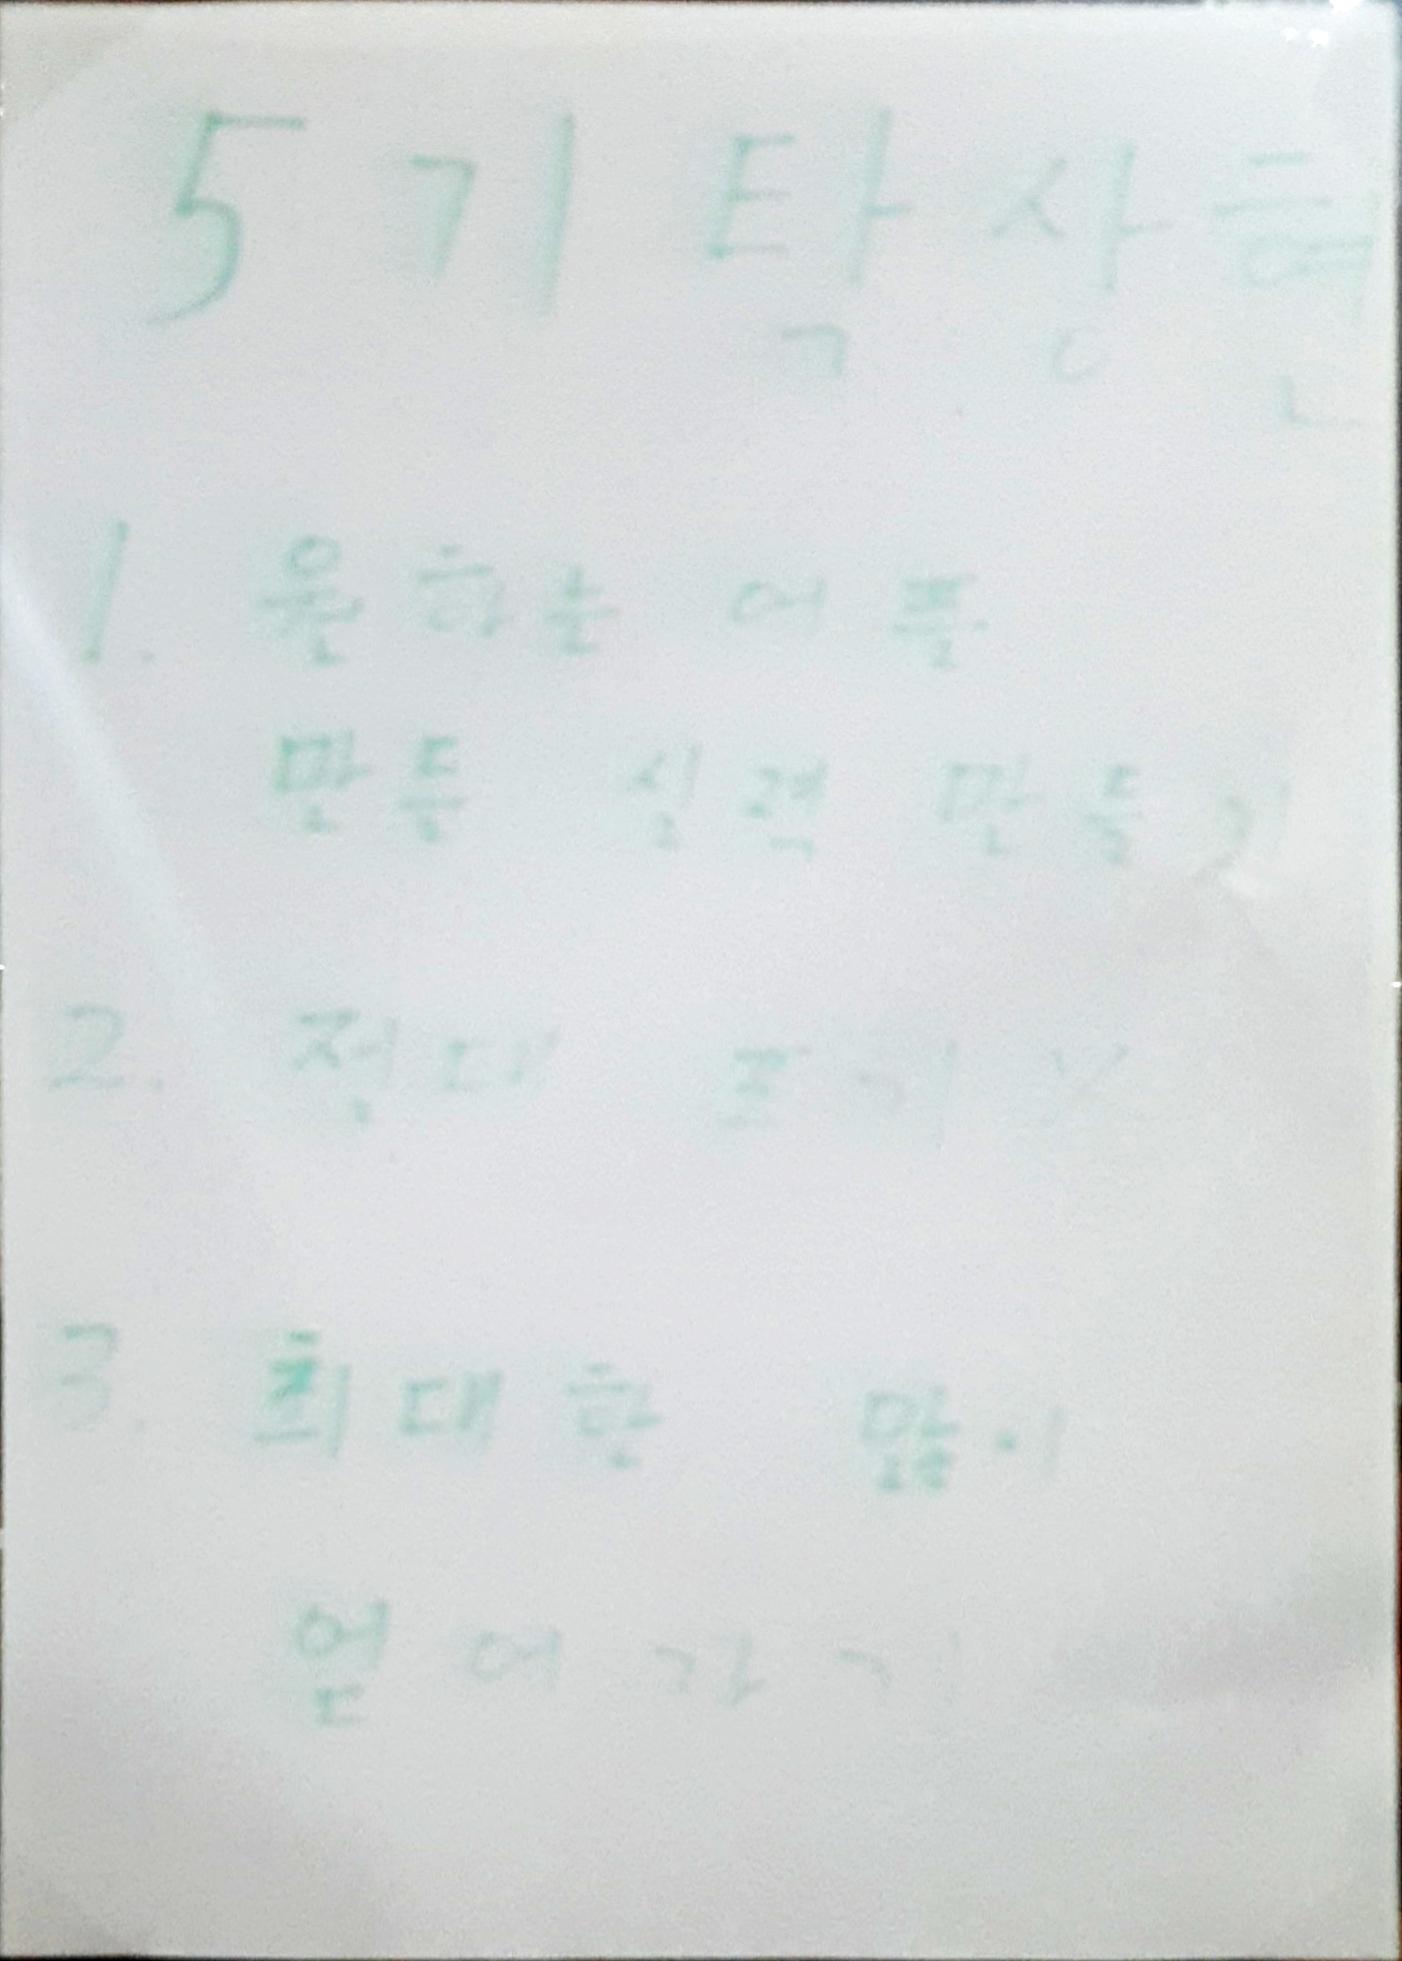 5기 탁상현
1. 원하는 어플
만든 실력 만들기
2. 절대 포기 X
3. 최대한 많이
얻어가기